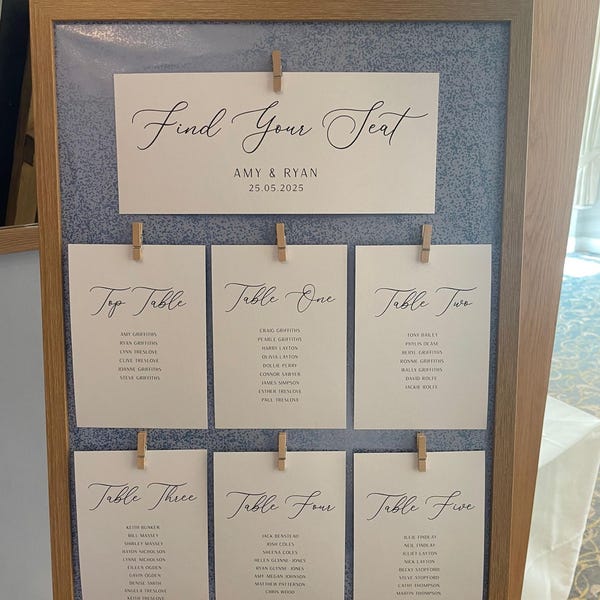 Find Your Seat
AMY & RYAN
25.05.2025
Top Table
AMY GRIFFITHS
RYAN GRIFFITHS
LYNN TRESLOVE
CLIVE TRESLOVE
JOANNE GRIFFITHS
STEVE GRIFFITHS
Table One
CRAIG GRIFFITHS
PEARLE GRIFFITHS
HARRY LAYTON
OLIVIA LAYTON
DOLLIE PERRY
CONNOR SAWYER
JAMES SIMPSON
ESTHER TRESLOVE
PAUL TRESLOVE
Table Two
TONY BAILEY
PHYLIS DCASE
BERYL GRIFFITHS
RONNIE GRIFFITHS
WALLY GRIFFITHS
DAVID ROLFE
JACKIE ROLFE
Table Three
KEITH BUNKER
BILL MASSEY
SHIRLEY MASSEY
HAYDN NICHOLSON
LYNNE NICHOLSON
EILEEN OGDEN
GAVIN OGDEN
DENISE SMITH
ANGELA TRESLOVE
KEITH TRESLOVE
Table Four
JACK BENSTEAD
JOSH COLES
SHEENA COLES
HELEN GLYNNE-JONES
RYAN GLYNNE-JONES
AMY-MEGAN JOHNSON
MATTHEW PATTERSON
CHRIS WOOD
Table Five
JULIE FINDLAY
NEIL FINDLAY
JULIET LAYTON
NICK LAYTON
BECKY STOPFORD
STEVE STOPFORD
CATHY THOMPSON
MARTIN THOMPSON